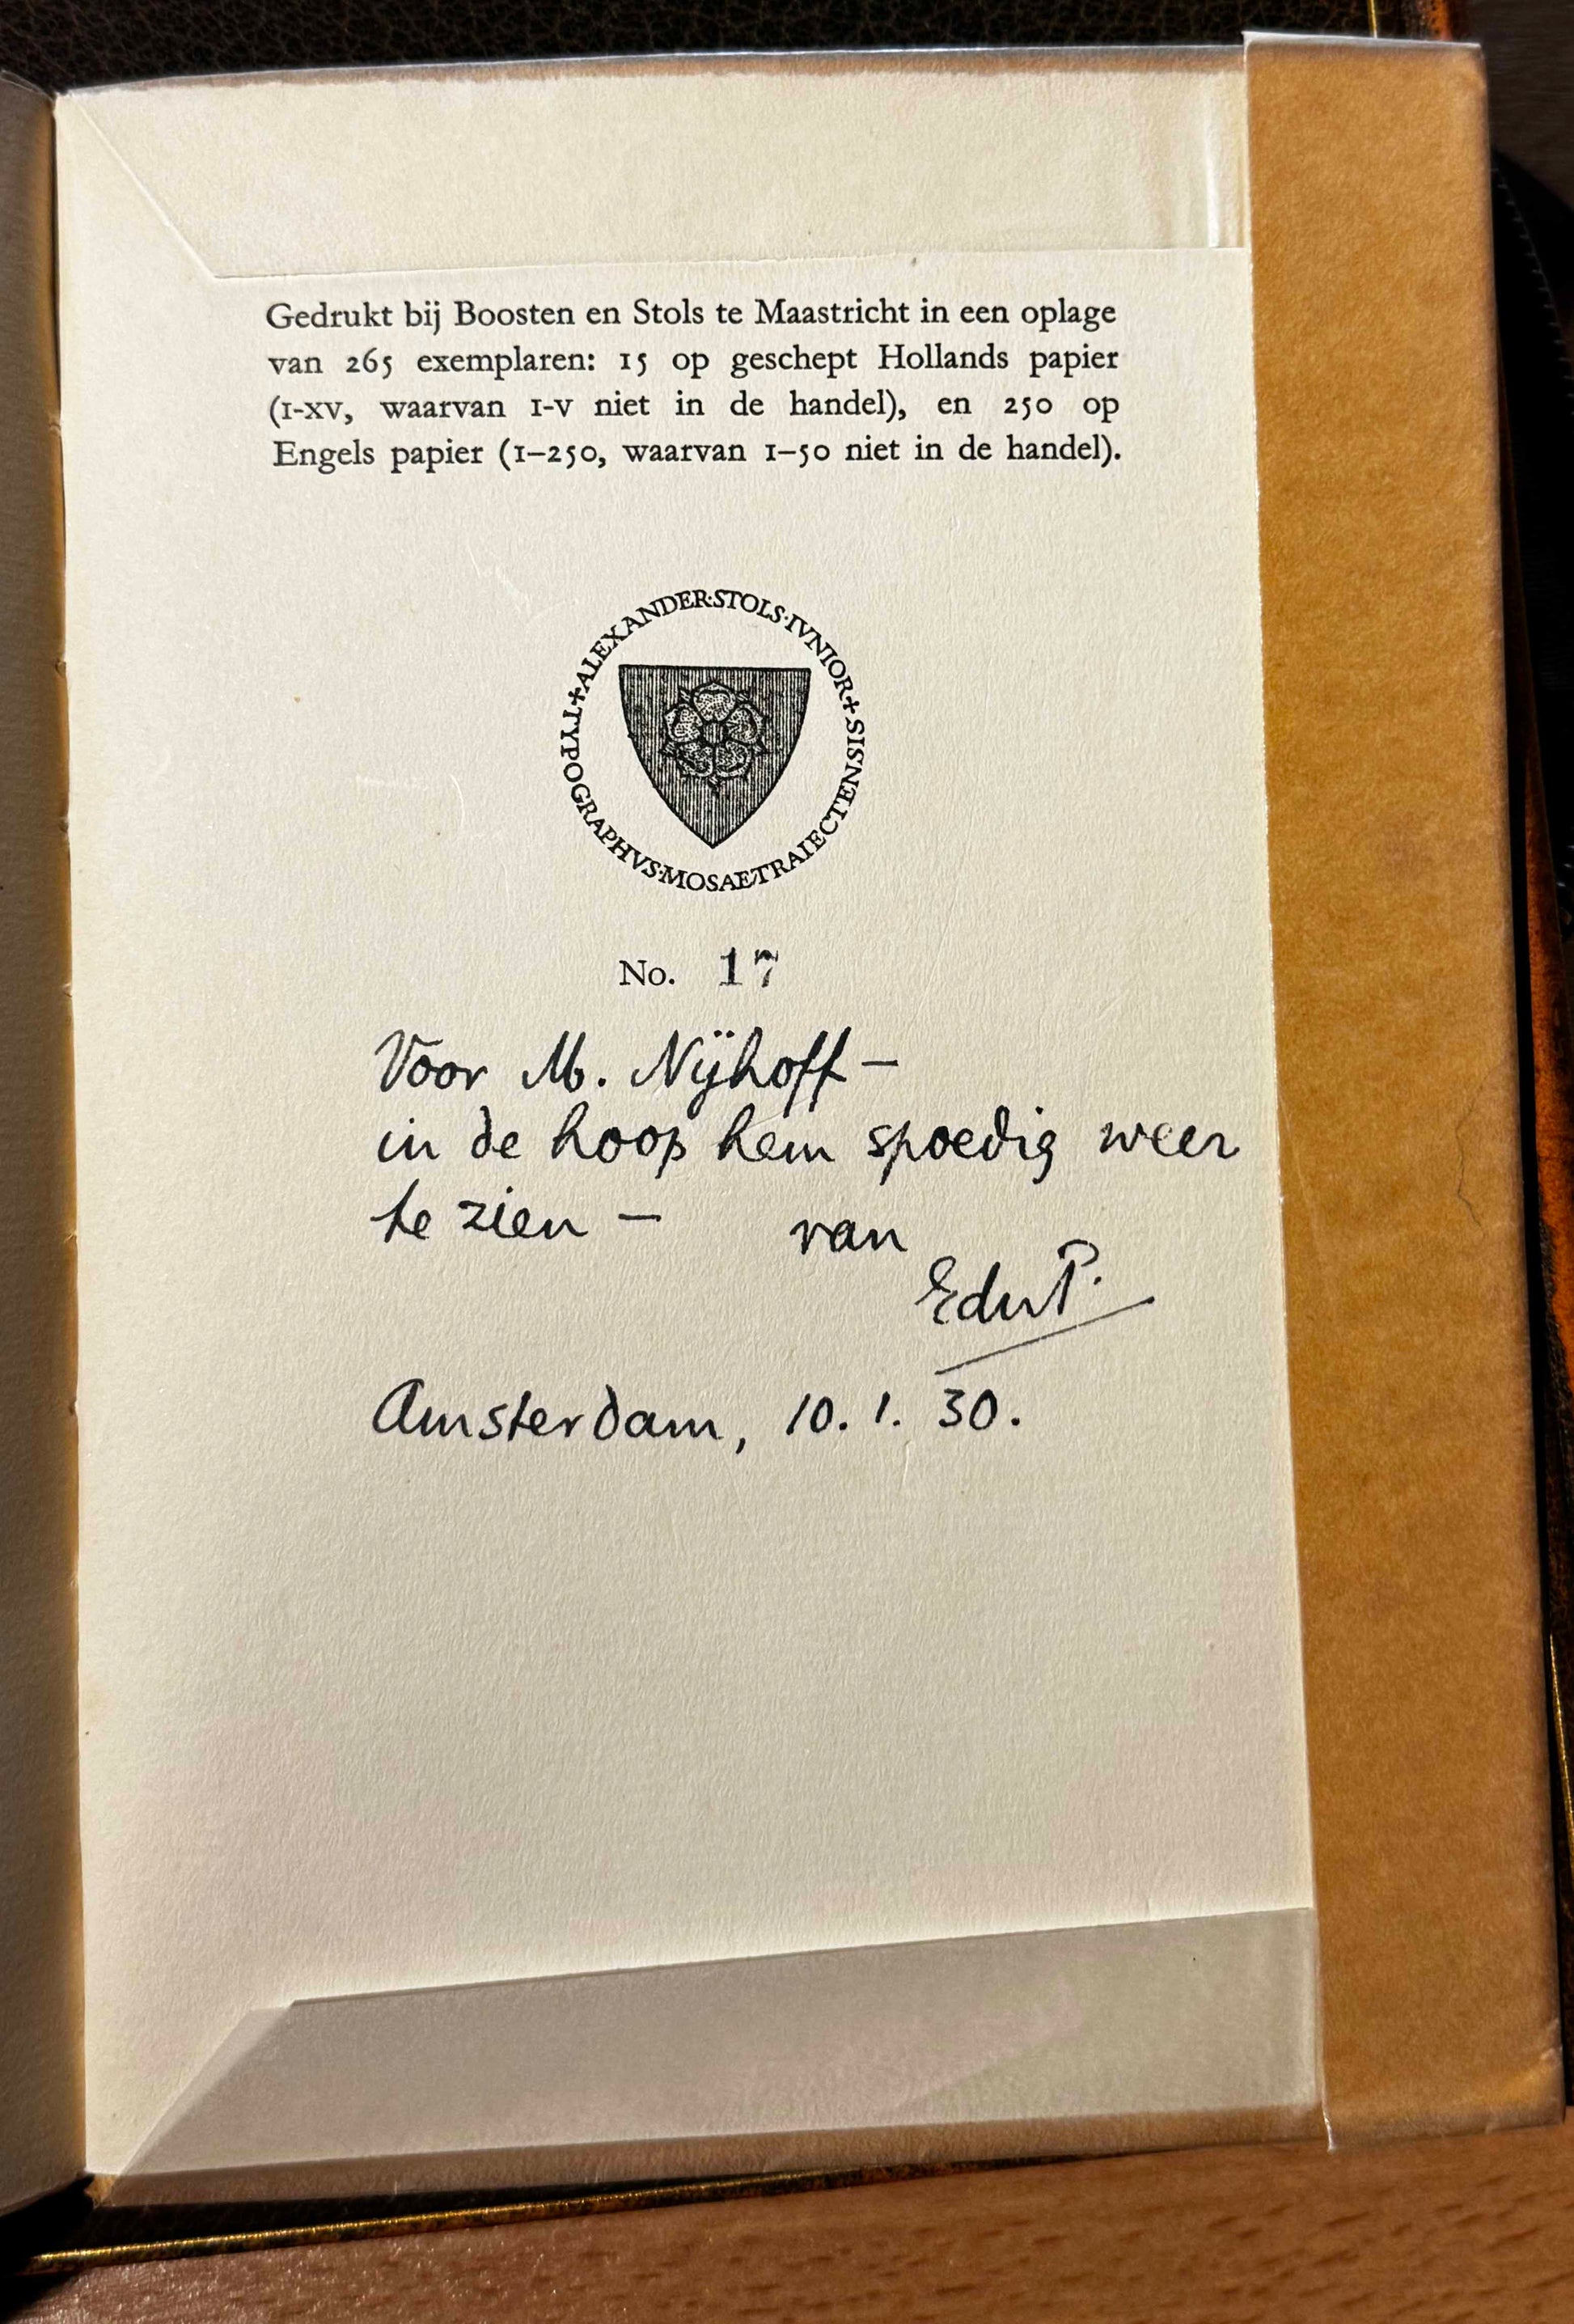 Gedrukt bij Boosten en Stols te Maastricht in een oplage
van 265 exemplaren: 15 op geschept Hollands papier
(I-XV, waarvan I-V niet in de handel), en 250 op
Engels papier (1–250, waarvan 1–50 niet in de handel).
ALEXANDER·STOLS·IVNIOR + SISNETCEIARTEASOM·SVHPARGOPYT +
No. 17
Voor M. Nijhoff —
in de hoop hem spoedig weer
te zien — van
EduP.
Amsterdam, 10. 1. 30.